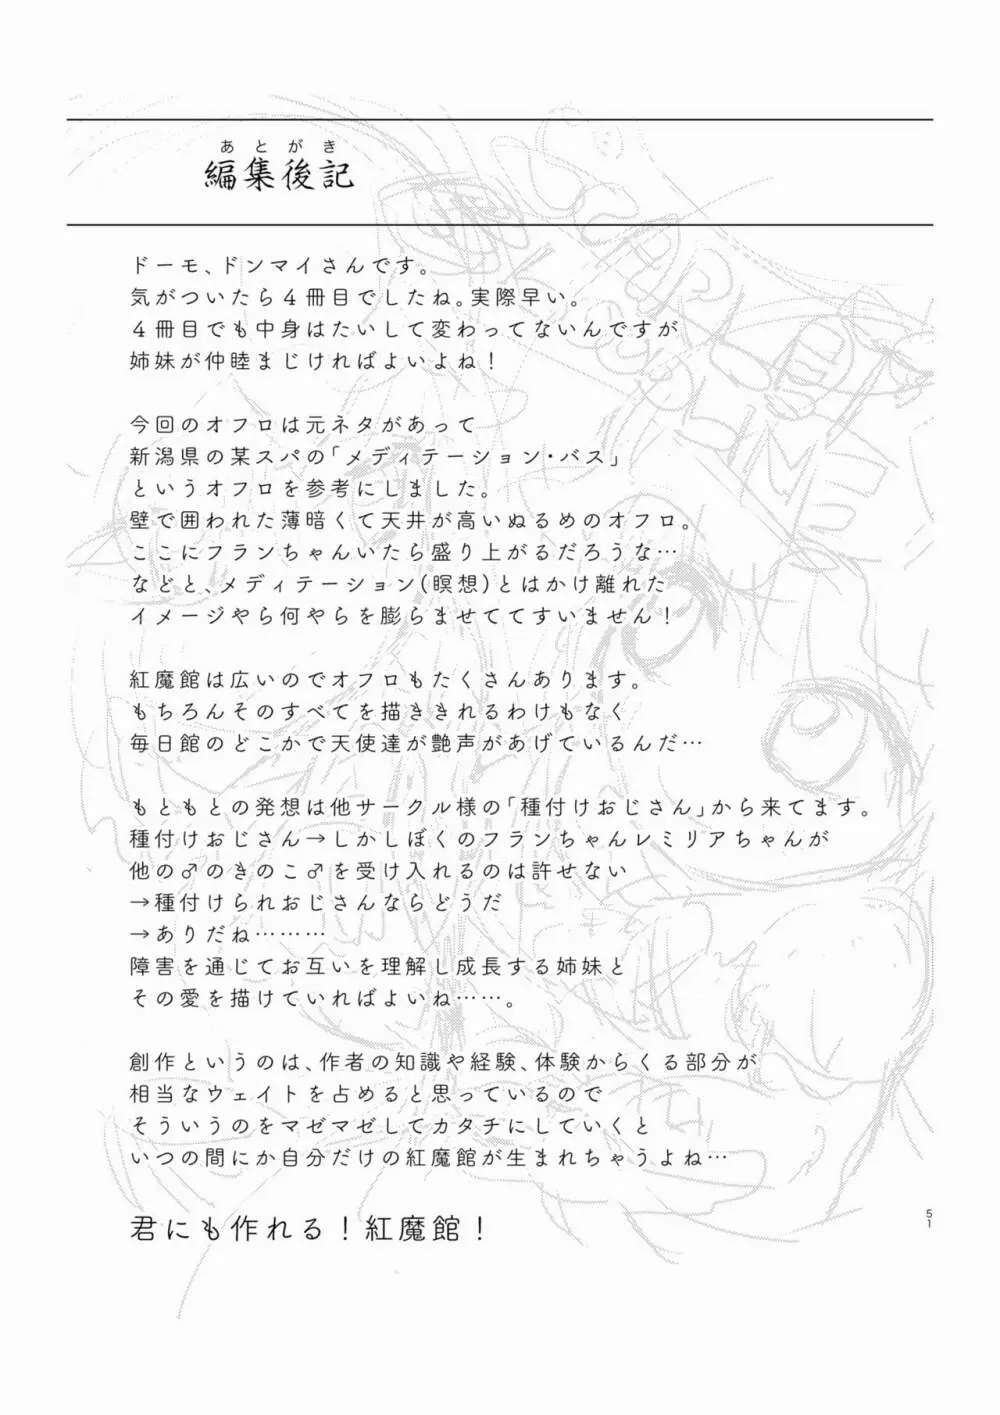 あとがき
編集後記
ドーモ、ドンマイさんです。
気がついたら４冊目でしたね。実際早い。
４冊目でも中身はたいして変わってないんですが
姉妹が仲睦まじければよいよね！
今回のオフロは元ネタがあって
新潟県の某スパの「メディテーション・バス」
というオフロを参考にしました。
壁で囲われた薄暗くて天井が高いぬるめのオフロ。
ここにフランちゃんいたら盛り上がるだろうな…
などと、メディテーション(瞑想)とはかけ離れた
イメージやら何やらを膨らませててすいません！
紅魔館は広いのでオフロもたくさんあります。
もちろんそのすべてを描ききれるわけもなく
毎日館のどこかで天使達が艶声があげているんだ…
もともとの発想は他サークル様の「種付けおじさん」から来てます。
種付けおじさん→しかしぼくのフランちゃんレミリアちゃんが
他の♂のきのこ♂を受け入れるのは許せない
→種付けられおじさんならどうだ
→ありだね………
障害を通じてお互いを理解し成長する姉妹と
その愛を描けていればよいね……。
創作というのは、作者の知識や経験、体験からくる部分が
相当なウェイトを占めると思っているので
そういうのをマゼマゼしてカタチにしていくと
いつの間にか自分だけの紅魔館が生まれちゃうよね…
君にも作れる！紅魔館！
51